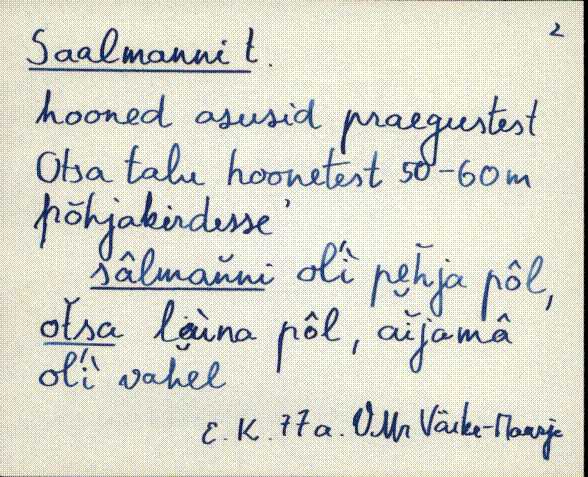 2
Saalmanni t.
hooned asusid praegustest
Otsa talu hoonetest 50-60m
põhjakirdesse'
sâlmän̆ni oĺì pe̮h̆ja pôl,
ot̆sa lä̮ùna pôl, ai̯jamâ
oĺì vahel
E. K. 77a. VMr Väike-Maarja